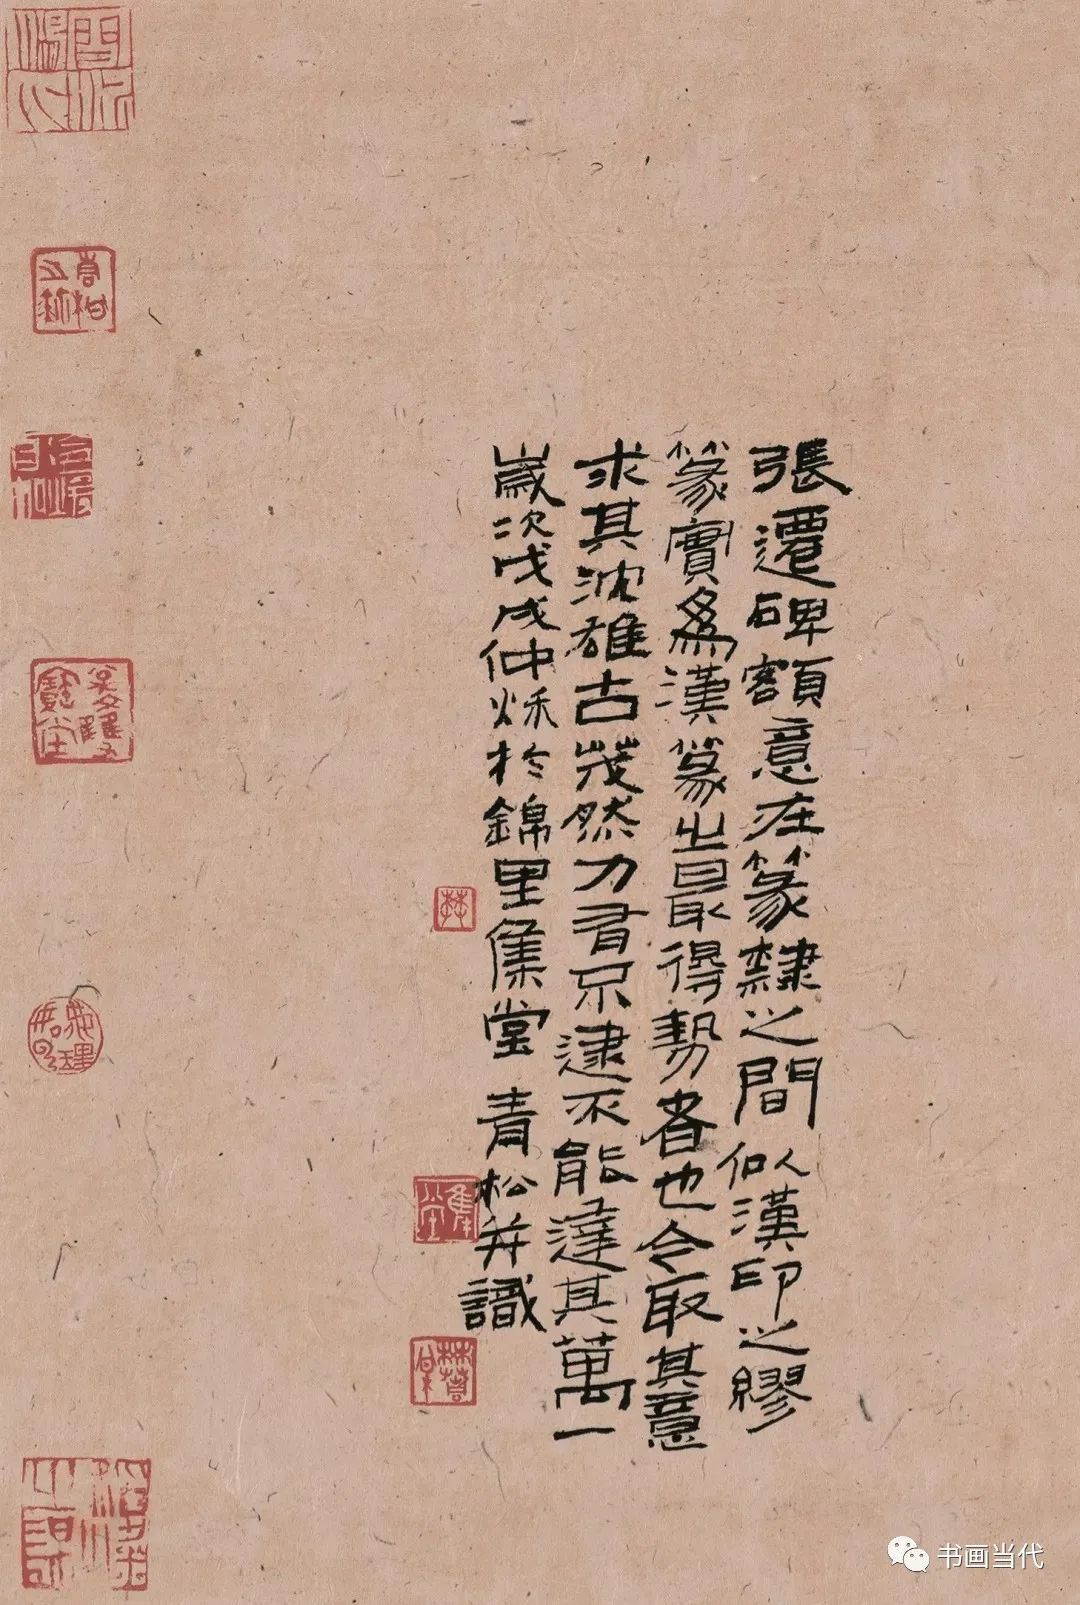 張遷碑額意在篆隸之間似漢印之繆
篆實為漢篆之最得勢者也今取其意
求其沈雄古茂然力有不逮不能達其萬一
歲次戊戌仲秋於錦里集堂 青松并識
书画当代